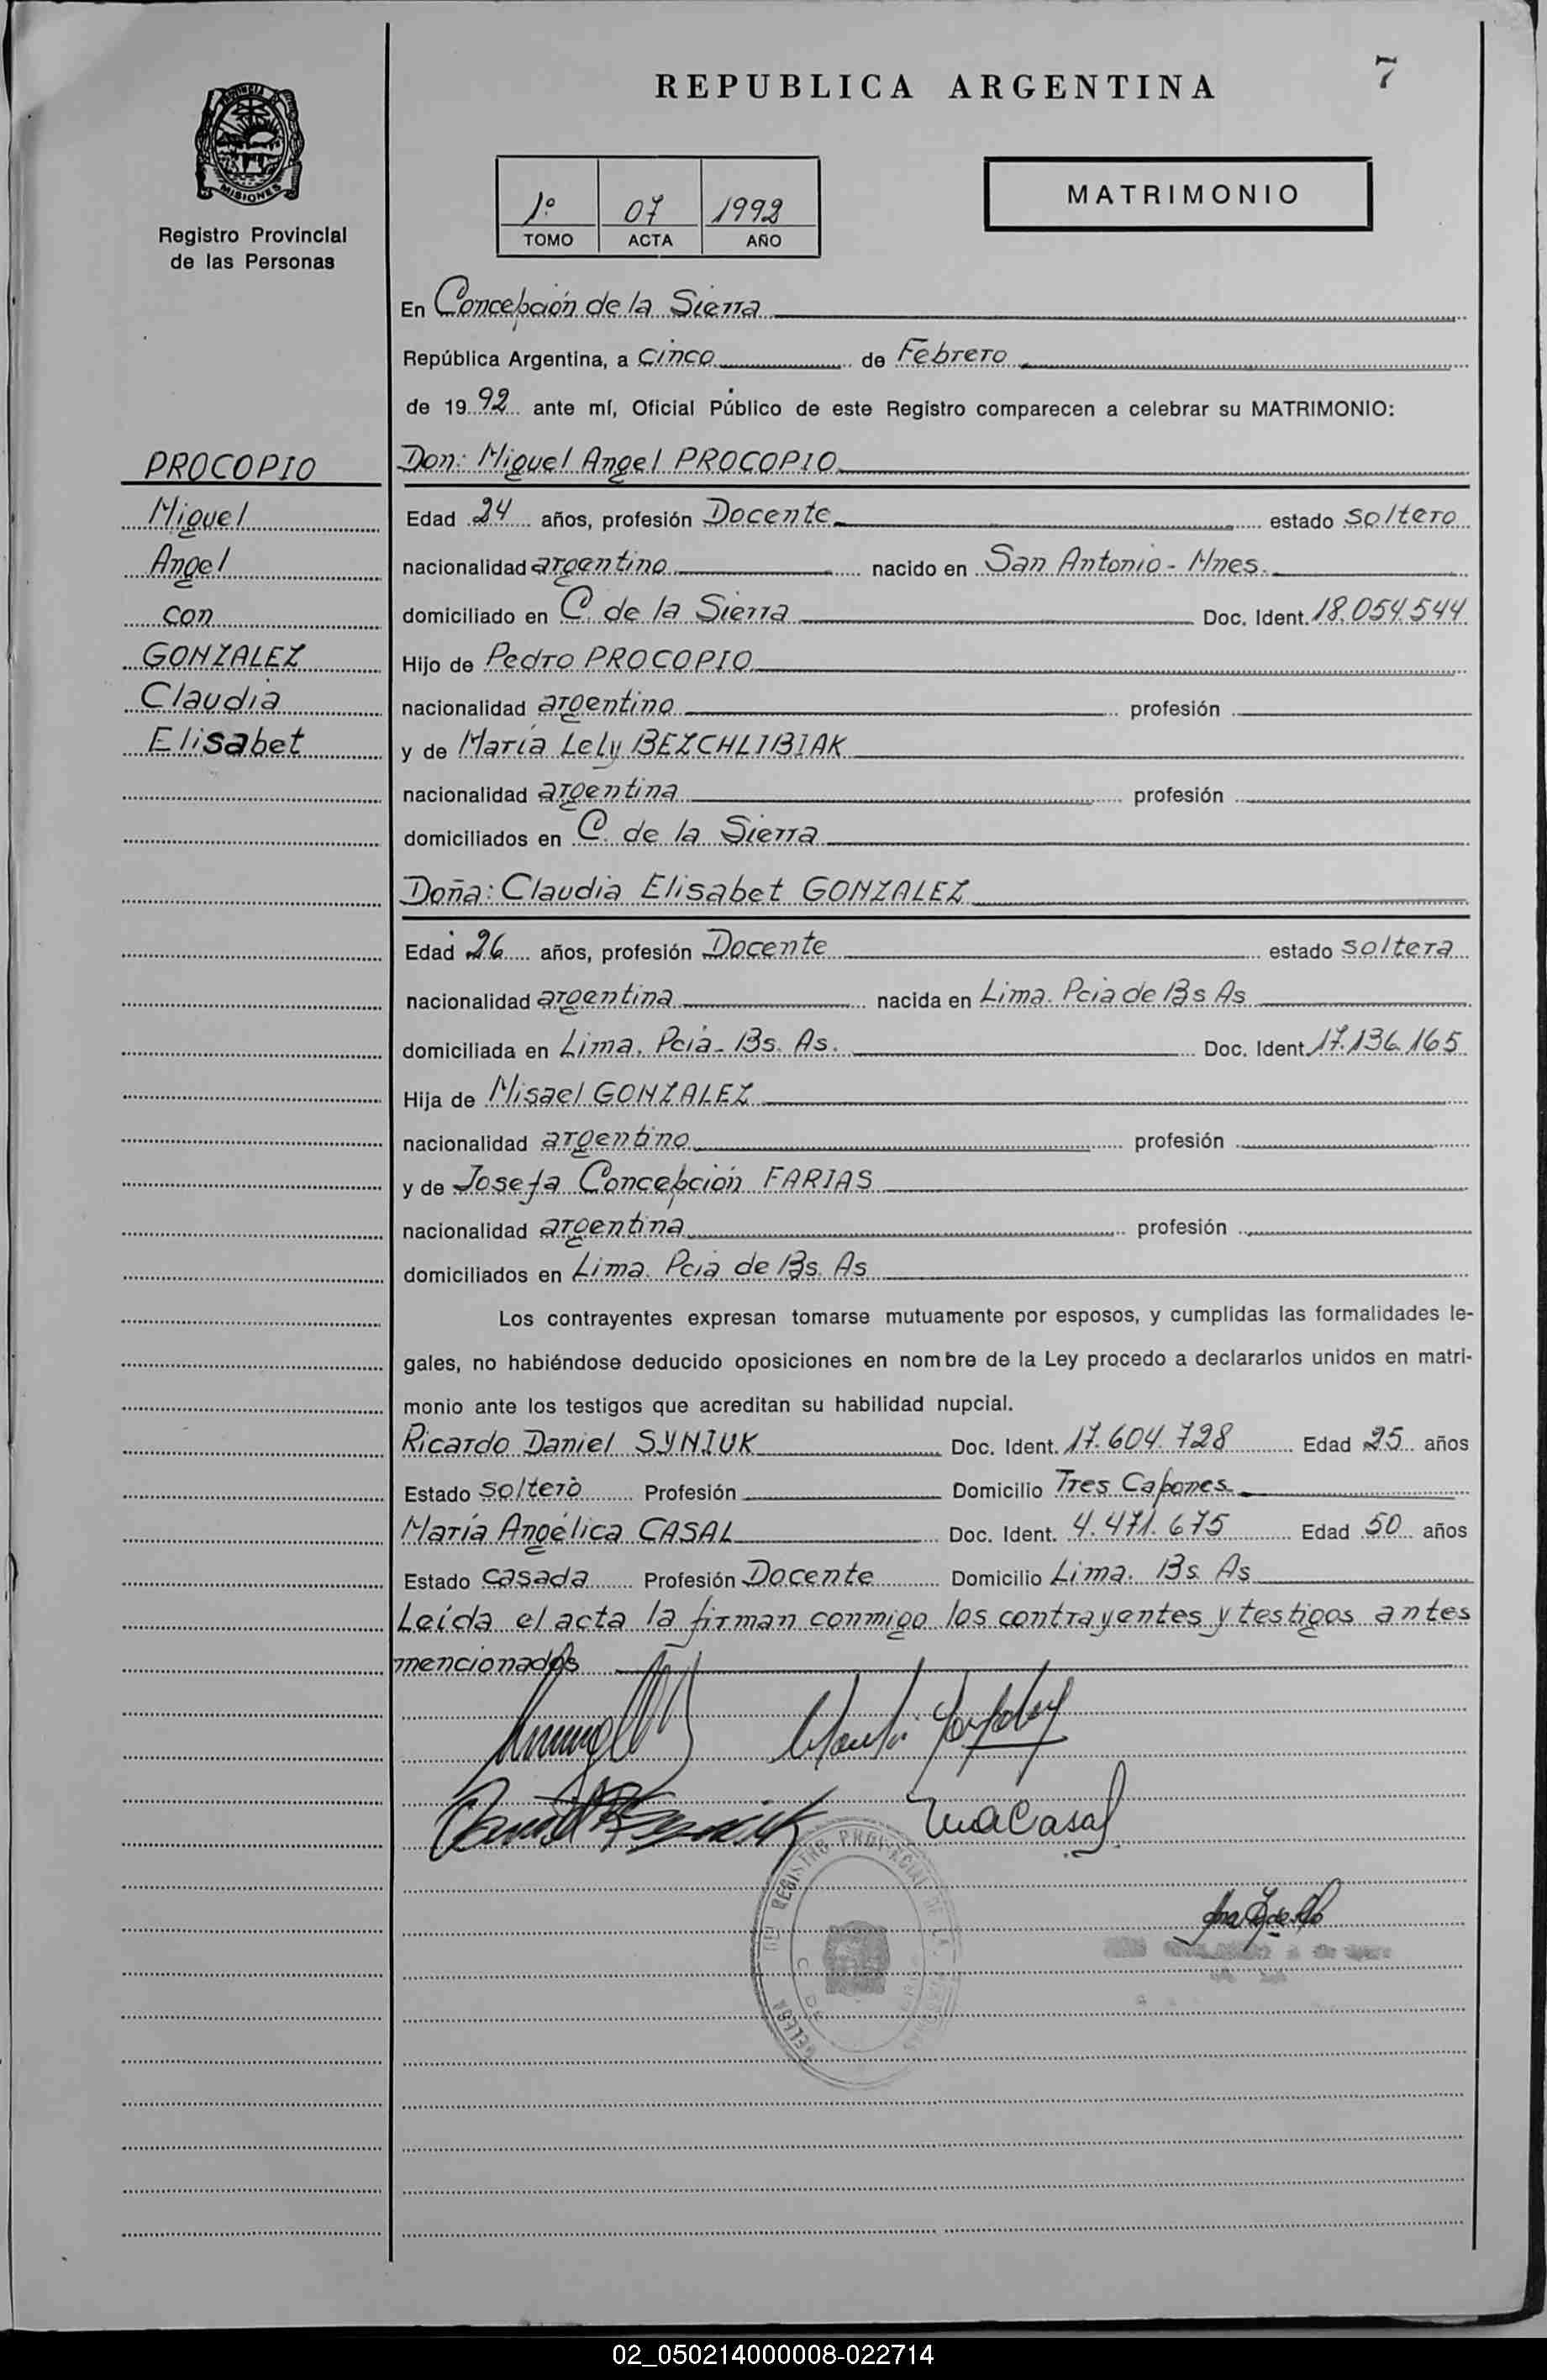 REPUBLICA ARGENTINA
7
MISIONES
Registro Provincial
de las Personas
1º 07 1992
TOMO ACTA AÑO
MATRIMONIO
En Concepción de la Sierra
República Argentina, a cinco de Febrero
de 1992 ante mí, Oficial Público de este Registro comparecen a celebrar su MATRIMONIO:
PROCOPIO
Miguel
Angel
con
GONZALEZ
Claudia
Elisabet
Don: Miguel Angel PROCOPIO
Edad 24 años, profesión Docente estado soltero
nacionalidad argentino nacido en San Antonio - Mnes.
domiciliado en C. de la Sierra Doc. Ident. 18.054.544
Hijo de Pedro PROCOPIO
nacionalidad argentino profesión
y de María Lely BEZCHLIBIAK
nacionalidad argentina profesión
domiciliados en C. de la Sierra
Doña: Claudia Elisabet GONZALEZ
Edad 26 años, profesión Docente estado soltera
nacionalidad argentina nacida en Lima. Pcia de Bs As
domiciliada en Lima. Pcia - Bs. As. Doc. Ident. 17.136.165
Hija de Misael GONZALEZ
nacionalidad argentino profesión
y de Josefa Concepción FARIAS
nacionalidad argentina profesión
domiciliados en Lima. Pcia de Bs. As
Los contrayentes expresan tomarse mutuamente por esposos, y cumplidas las formalidades le-
gales, no habiéndose deducido oposiciones en nombre de la Ley procedo a declararlos unidos en matri-
monio ante los testigos que acreditan su habilidad nupcial.
Ricardo Daniel SYNIUK Doc. Ident. 17.604.728 Edad 25 años
Estado soltero Profesión Domicilio Tres Capones
María Angélica CASAL Doc. Ident. 4.471.675 Edad 50 años
Estado casada Profesión Docente Domicilio Lima. Bs As
Leída el acta la firman conmigo los contrayentes y testigos antes
mencionados
MaCasal
02_050214000008-022714